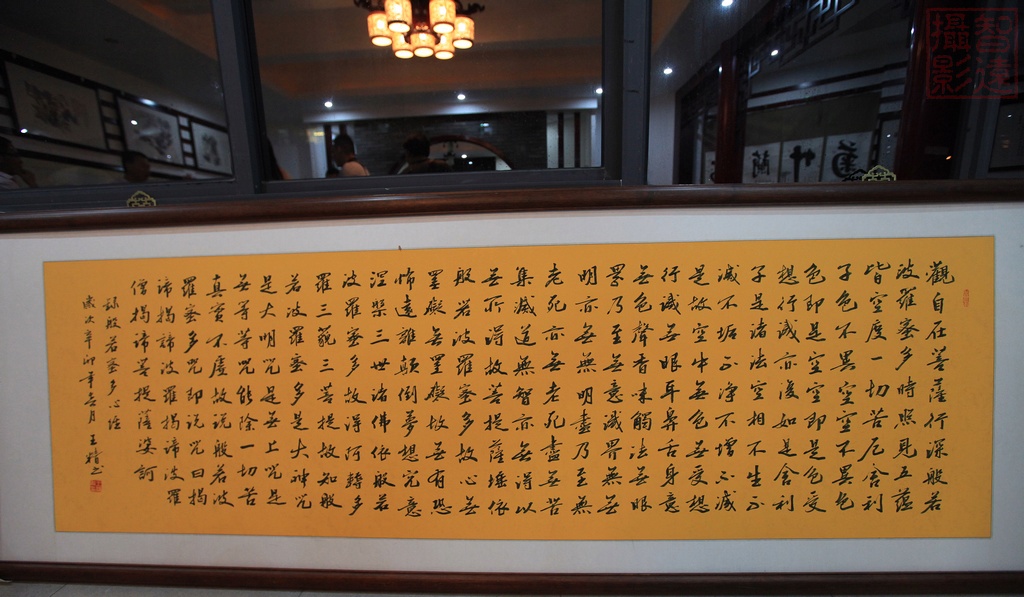 觀自在菩薩行深般若
波羅蜜多時照見五蘊
皆空度一切苦厄舍利
子色不異空空不異色
色即是空空即是色受
想行識亦復如是舍利
子是諸法空相不生不
滅不垢不淨不增不減
是故空中無色無受想
行識無眼耳鼻舌身意
無色聲香味觸法無眼
界乃至無意識界無無
明亦無無明盡乃至無
老死亦無老死盡無苦
集滅道無智亦無得以
無所得故菩提薩埵依
般若波羅蜜多故心無
罣礙無罣礙故無有恐
怖遠離顛倒夢想究竟
涅槃三世諸佛依般若
波羅蜜多故得阿耨多
羅三藐三菩提故知般
若波羅蜜多是大神咒
是大明咒是無上咒是
無等等咒能除一切苦
真實不虛故說般若波
羅蜜多咒即說咒曰揭
諦揭諦波羅揭諦波羅
僧揭諦菩提薩婆訶
錄般若蜜多心經
歲次辛卯年 月 王 書
智達攝影
蘭竹菊